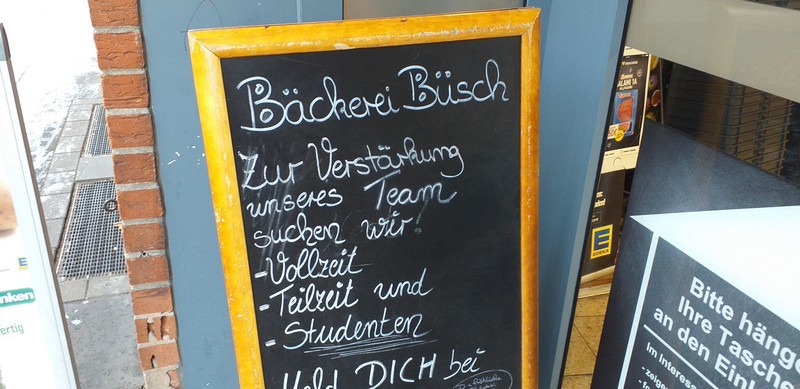 Bäckerei Büsch
Zur Verstärkung
unseres Team
suchen wir!
-Vollzeit
-Teilzeit und
-Studenten
Meld DICH bei
EDEKA
SALAMI
Bitte häng
Ihre Tasche
an den Eink
Im Interess
nken
ertig